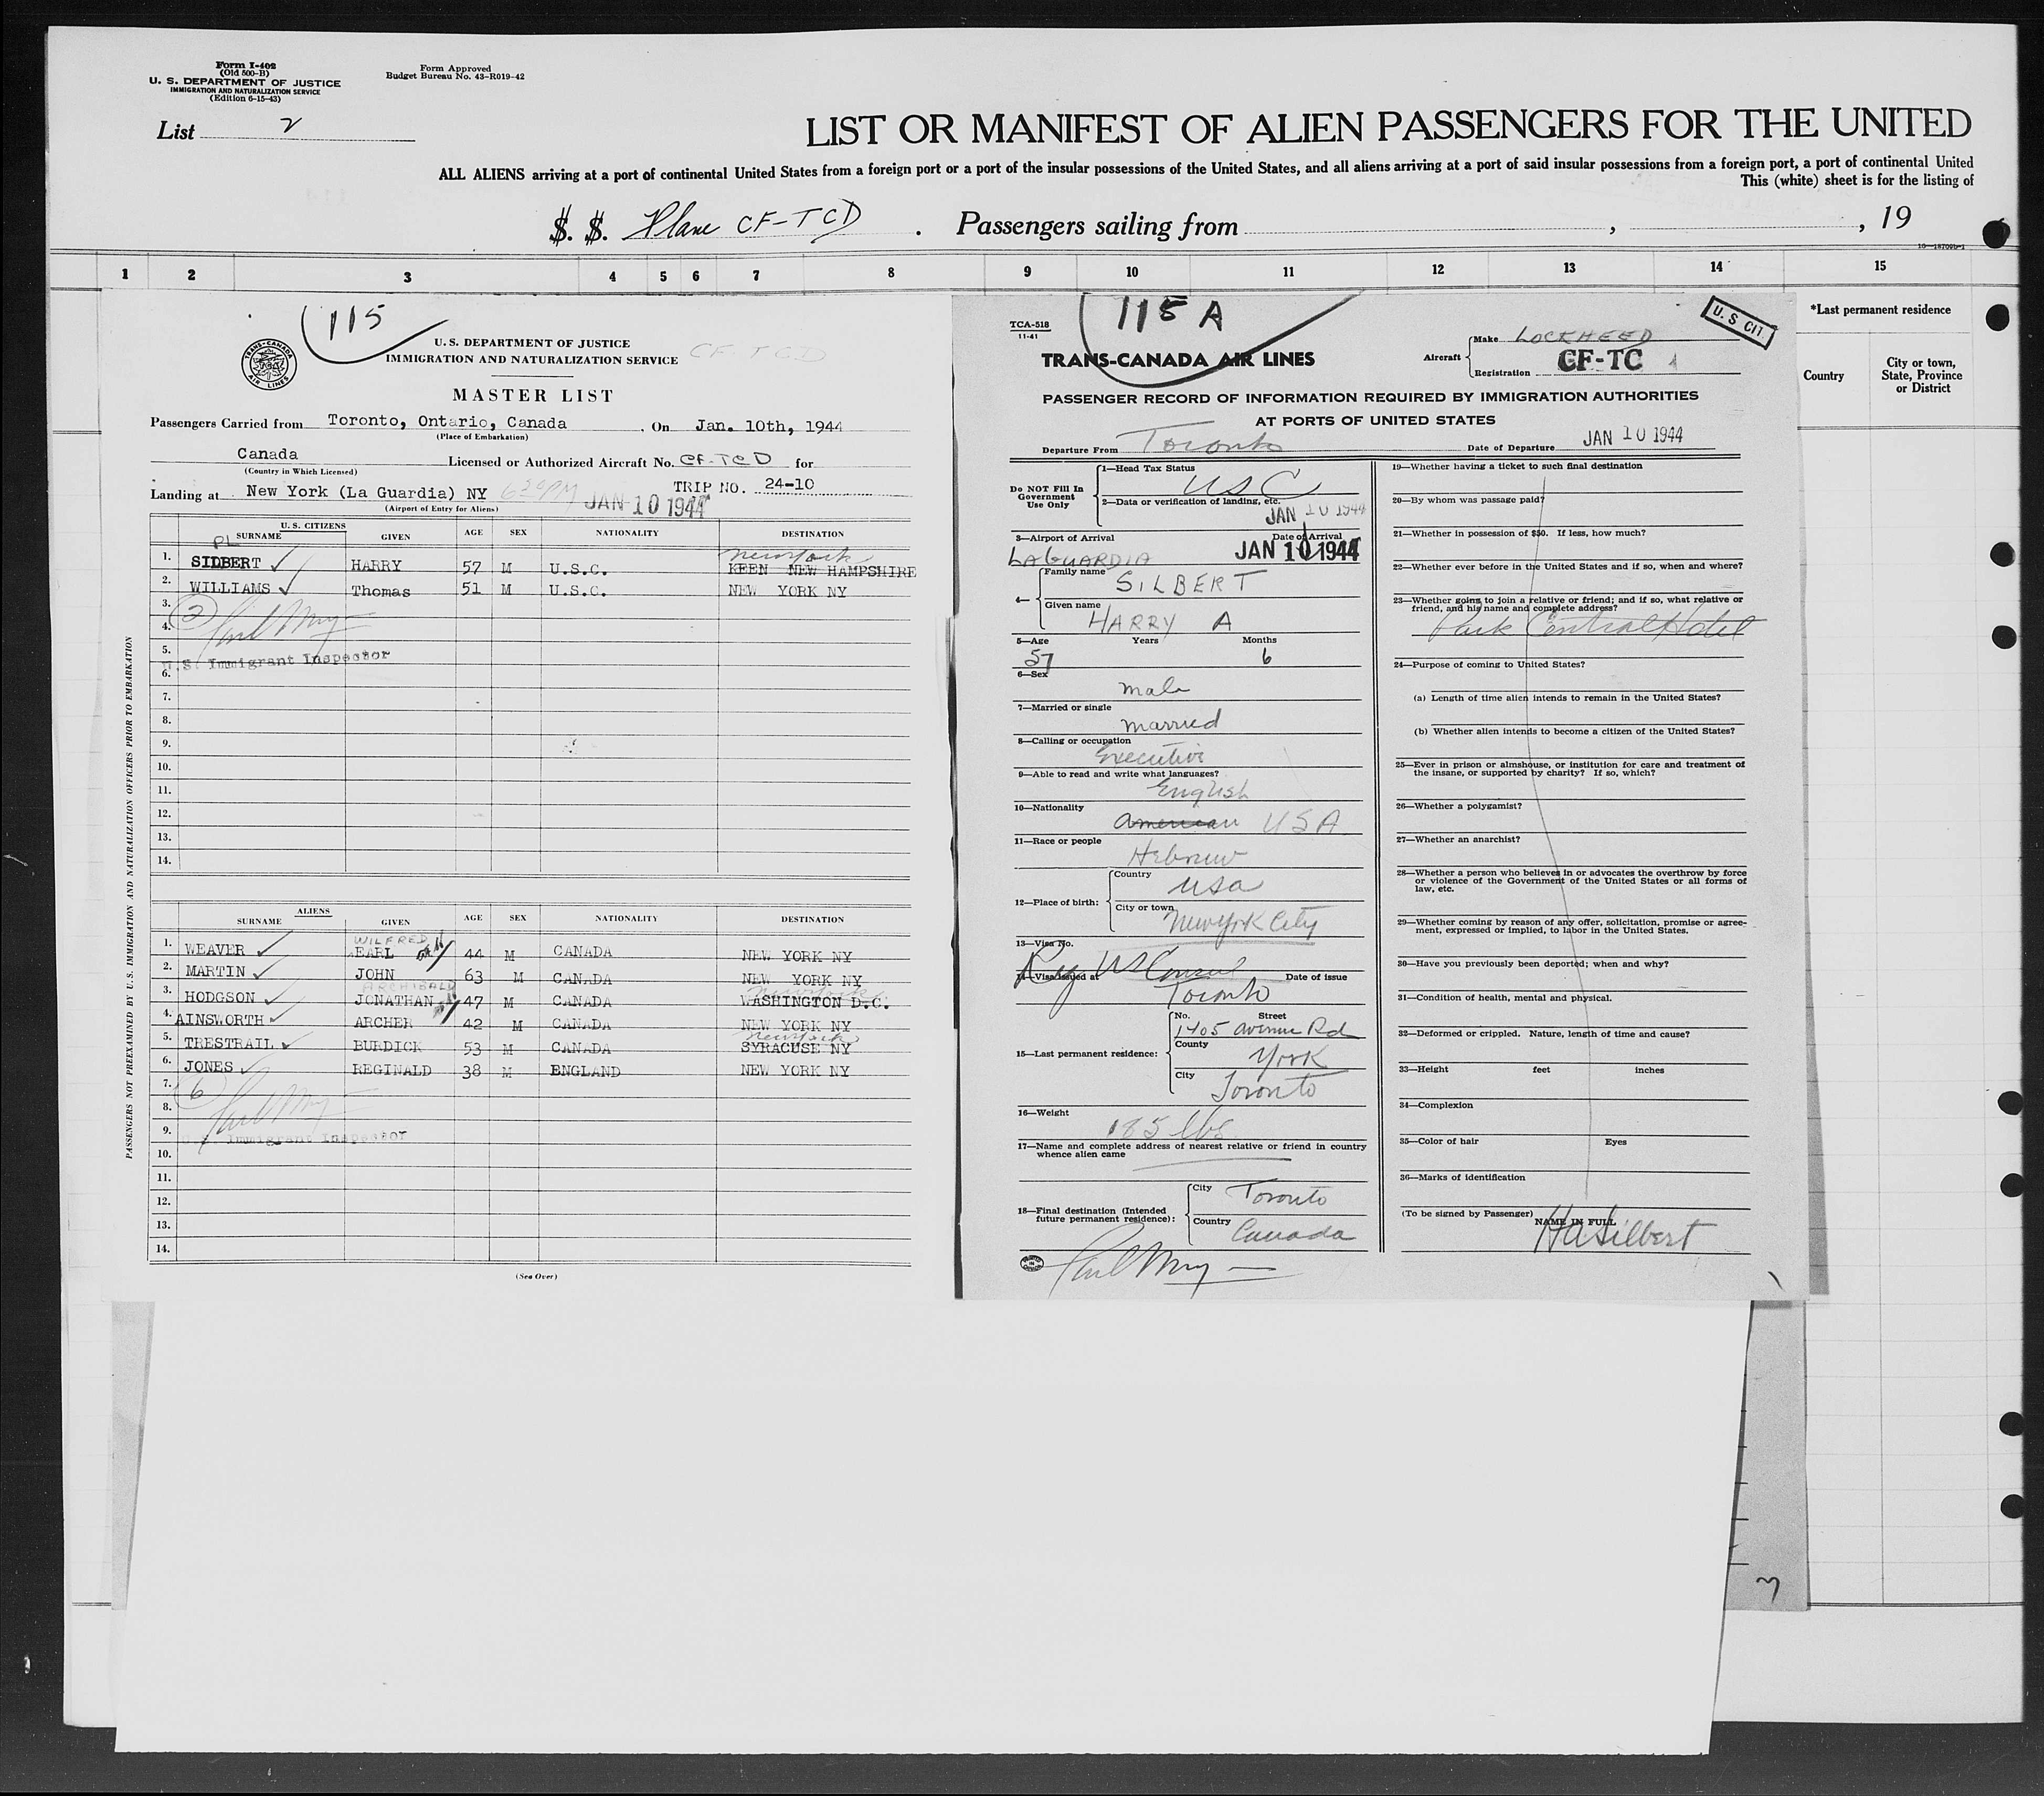 Form I-402
(Old 500-B)
U. S. DEPARTMENT OF JUSTICE
IMMIGRATION AND NATURALIZATION SERVICE
(Edition 6-15-43)
Form Approved
Budget Bureau No. 43-R019-42
List 2
LIST OR MANIFEST OF ALIEN PASSENGERS FOR THE UNITED
ALL ALIENS arriving at a port of continental United States from a foreign port or a port of the insular possessions of the United States, and all aliens arriving at a port of said insular possessions from a foreign port, a port of continental United
This (white) sheet is for the listing of
S. S. Plane CF-TCD . Passengers sailing from , , 19
1 2 3 4 5 6 7 8 9 10 11 12 13 14 15
*Last permanent residence
Country
City or town, State, Province or District
115
TRANS-CANADA AIR LINES
U. S. DEPARTMENT OF JUSTICE
IMMIGRATION AND NATURALIZATION SERVICE
CF-TCD
MASTER LIST
Passengers Carried from Toronto, Ontario, Canada . On Jan. 10th, 1944
(Place of Embarkation)
Canada Licensed or Authorized Aircraft No. CF-TCD for
(Country in Which Licensed)
TRIP NO. 24-10
Landing at New York (La Guardia) NY 6 30 PM JAN 10 1944
(Airport of Entry for Aliens)
U. S. CITIZENS
SURNAME GIVEN AGE SEX NATIONALITY DESTINATION
PL
New York
1. SILBERT HARRY 57 M U.S.C. KEEN NEW HAMPSHIRE
2. WILLIAMS Thomas 51 M U.S.C. NEW YORK NY
3.
2
4.
5.
U.S. Immigrant Inspector
6.
7.
8.
9.
10.
11.
12.
13.
14.
ALIENS
SURNAME GIVEN AGE SEX NATIONALITY DESTINATION
WILFRED
1. WEAVER EARL 44 M CANADA NEW YORK NY
2. MARTIN JOHN 63 M CANADA NEW YORK NY
ARCHIBALD
New York
3. HODGSON JONATHAN 47 M CANADA WASHINGTON D.C.
4. AINSWORTH ARCHER 42 M CANADA NEW YORK NY
New York
5. TRESTRAIL BURDICK 53 M CANADA SYRACUSE NY
6. JONES REGINALD 38 M ENGLAND NEW YORK NY
7.
6
8.
9.
Immigrant Inspector
10.
11.
12.
13.
14.
(See Over)
PASSENGERS NOT PREEXAMINED BY U.S. IMMIGRATION AND NATURALIZATION OFFICERS PRIOR TO EMBARKATION
115 A
TCA-518
11-41
TRANS-CANADA AIR LINES
Aircraft
Make LOCKHEED
Registration CF-TC
U. S CIT
PASSENGER RECORD OF INFORMATION REQUIRED BY IMMIGRATION AUTHORITIES
AT PORTS OF UNITED STATES
Departure From Toronto Date of Departure JAN 10 1944
Do NOT Fill In Government Use Only
1—Head Tax Status
USC
2—Data or verification of landing, etc.
JAN 10 1944
3—Airport of Arrival Date of Arrival
LAGUARDIA JAN 10 1944
4—
Family name SILBERT
Given name HARRY A
5—Age Years Months
57 6
6—Sex
male
7—Married or single
married
8—Calling or occupation
Executive
9—Able to read and write what languages?
English
10—Nationality
American USA
11—Race or people
Hebrew
12—Place of birth:
Country
USA
City or town
New York City
13—Visa No.
US Consul
14—Visa issued at Date of issue
Toronto
15—Last permanent residence:
No. Street
1405 Avenue Rd
County
York
City
Toronto
16—Weight
185 lbs.
17—Name and complete address of nearest relative or friend in country
whence alien came
18—Final destination (Intended
future permanent residence):
City Toronto
Country Canada
19—Whether having a ticket to such final destination
20—By whom was passage paid?
21—Whether in possession of $50. If less, how much?
22—Whether ever before in the United States and if so, when and where?
23—Whether going to join a relative or friend; and if so, what relative or
friend, and his name and complete address?
Park Central Hotel
24—Purpose of coming to United States?
(a) Length of time alien intends to remain in the United States?
(b) Whether alien intends to become a citizen of the United States?
25—Ever in prison or almshouse, or institution for care and treatment of
the insane, or supported by charity? If so, which?
26—Whether a polygamist?
27—Whether an anarchist?
28—Whether a person who believes in or advocates the overthrow by force
or violence of the Government of the United States or all forms of
law, etc.
29—Whether coming by reason of any offer, solicitation, promise or agree-
ment, expressed or implied, to labor in the United States.
30—Have you previously been deported; when and why?
31—Condition of health, mental and physical.
32—Deformed or crippled. Nature, length of time and cause?
33—Height feet inches
34—Complexion
35—Color of hair Eyes
36—Marks of identification
(To be signed by Passenger)
NAME IN FULL
HA Silbert